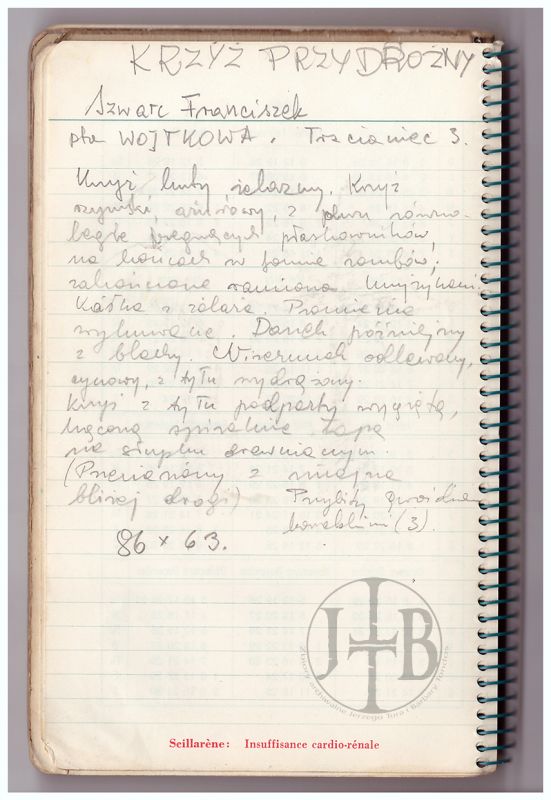 KRZYŻ PRZYDROŻNY
Szwarc Franciszek
pta WOJTKOWA. Trzcianiec 3.
Krzyż kuty żelazny. Krzyż
rzymski, ażurowy, z dwu równo-
ległe biegnących płaskowników,
na końcach w formie rombów;
zakończone ramiona.
z żelaza. Promienie
wykuwane. Daszek późniejszy
z blachy. Wizerunek odlewany,
cynowy, z tyłu wydrążony.
Krzyż z tyłu podparty wygiętą,
kręconą spiralnie łapą
na słupku drewnianym.
(Przeniesiony z miejsca
bliżej drogi) Przybity gwoździami
kowalskimi (3).
86 x 63.
JTB
Zbiory archiwalne Jerzego Tura i Barbary Tondos
Scillarène: Insuffisance cardio-rénale